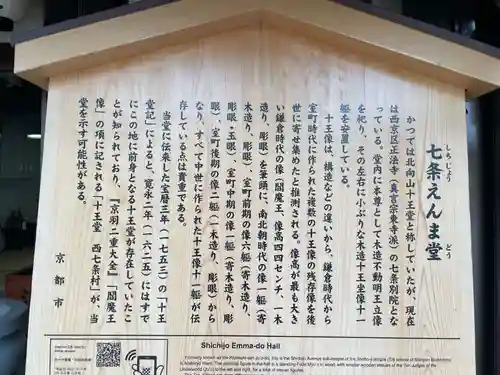 七条えんま堂
しちじょう　どう
かつては北向山十王堂と称していたが、現在
は西京区正法寺（真言宗東寺派）の七条別院とな
っている。堂内に本尊として木造不動明王立像
を祀り、その左右に小ぶりな木造十王坐像十一
軀を安置している。
十王像は、構造などの違いから、鎌倉時代から
室町時代に作られた複数の十王像の残存像を後
世に寄せ集めたと推測される。像高が最も大き
い鎌倉時代の像（閻魔王、像高四四センチ、一木
造り、彫眼）を筆頭に、南北朝時代の像一軀（寄
木造り、彫眼）、室町前期の像六軀（寄木造り、
彫眼・玉眼）、室町中期の像一軀（寄木造り、彫
眼）、室町後期の像二軀（一木造り、彫眼）から
なり、すべて中世に作られた十王像十一軀が伝
存している点は貴重である。
当堂に伝来した宝暦三年（一七五三）の「十王
堂記」によると、寛永二年（一六二五）にはすで
にこの地に前身となる十王堂が存在していたこ
とが知られており、『京羽二重大全』「閻魔王
像」の項に記される「十王堂　西七条村」が当
堂を示す可能性がある。
京都市
Shichijo Emma-do Hall